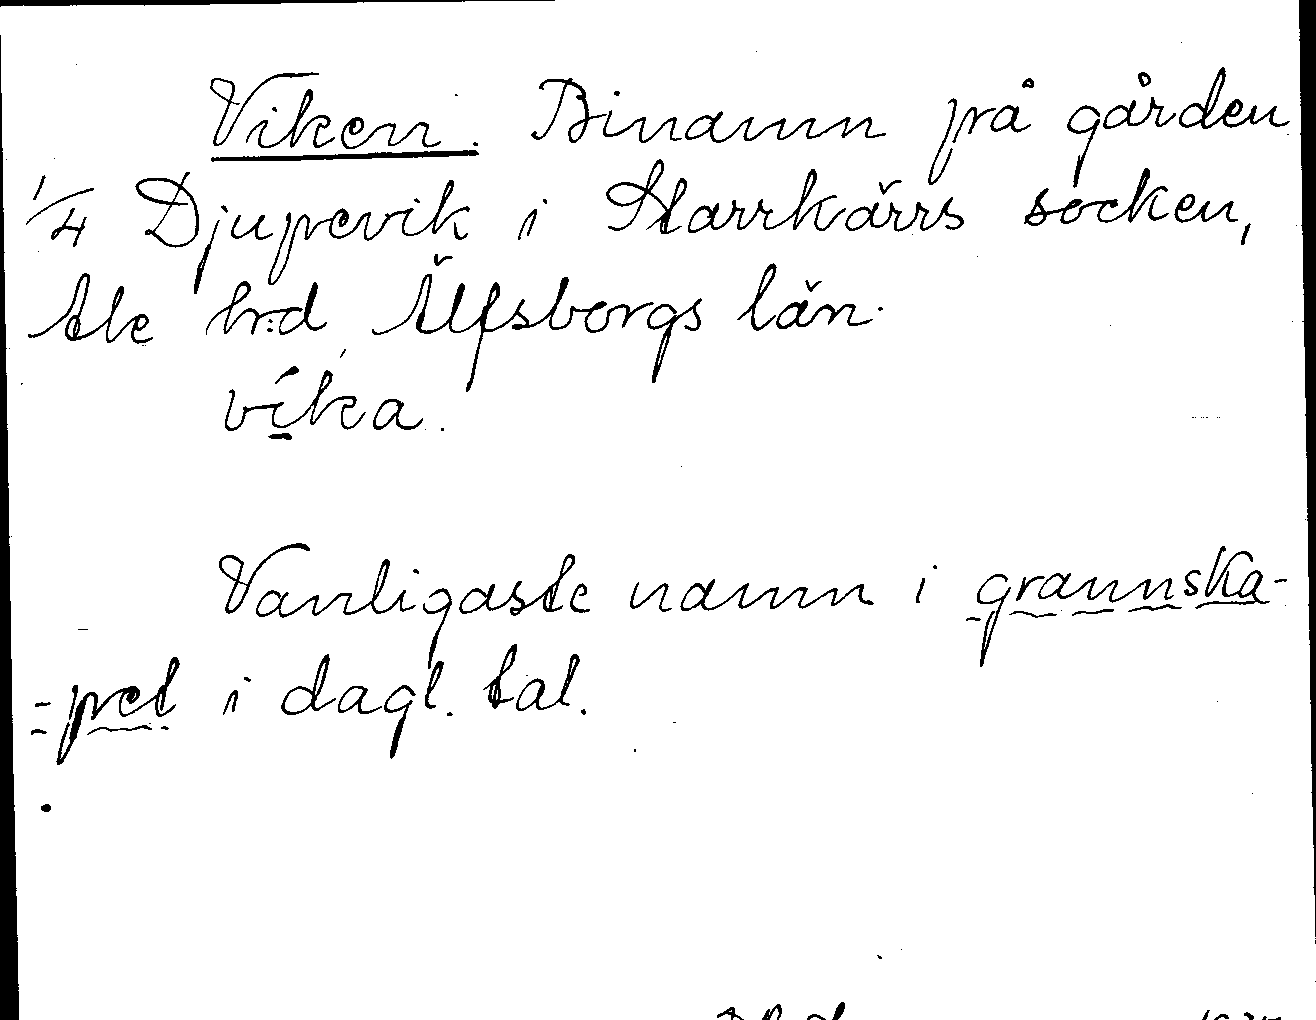 Viken. Binamn på gården
1/4 Djupevik i Starrkärrs socken,
Ale hrd Älfsborgs län.
víka.
Vanligaste namn i grannska-
-pet i dagl. tal.